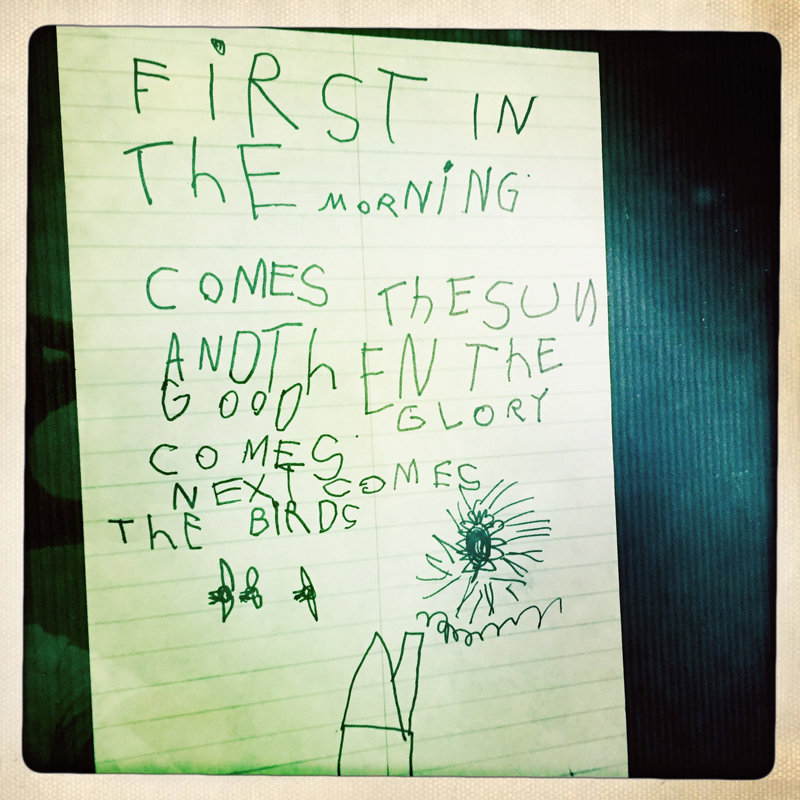 FiRST IN
ThE MORNiNG
COMES ThE SUN
AND ThEN ThE
GOOD GLORY
COMES
NEXT COMES
ThE BIRDS